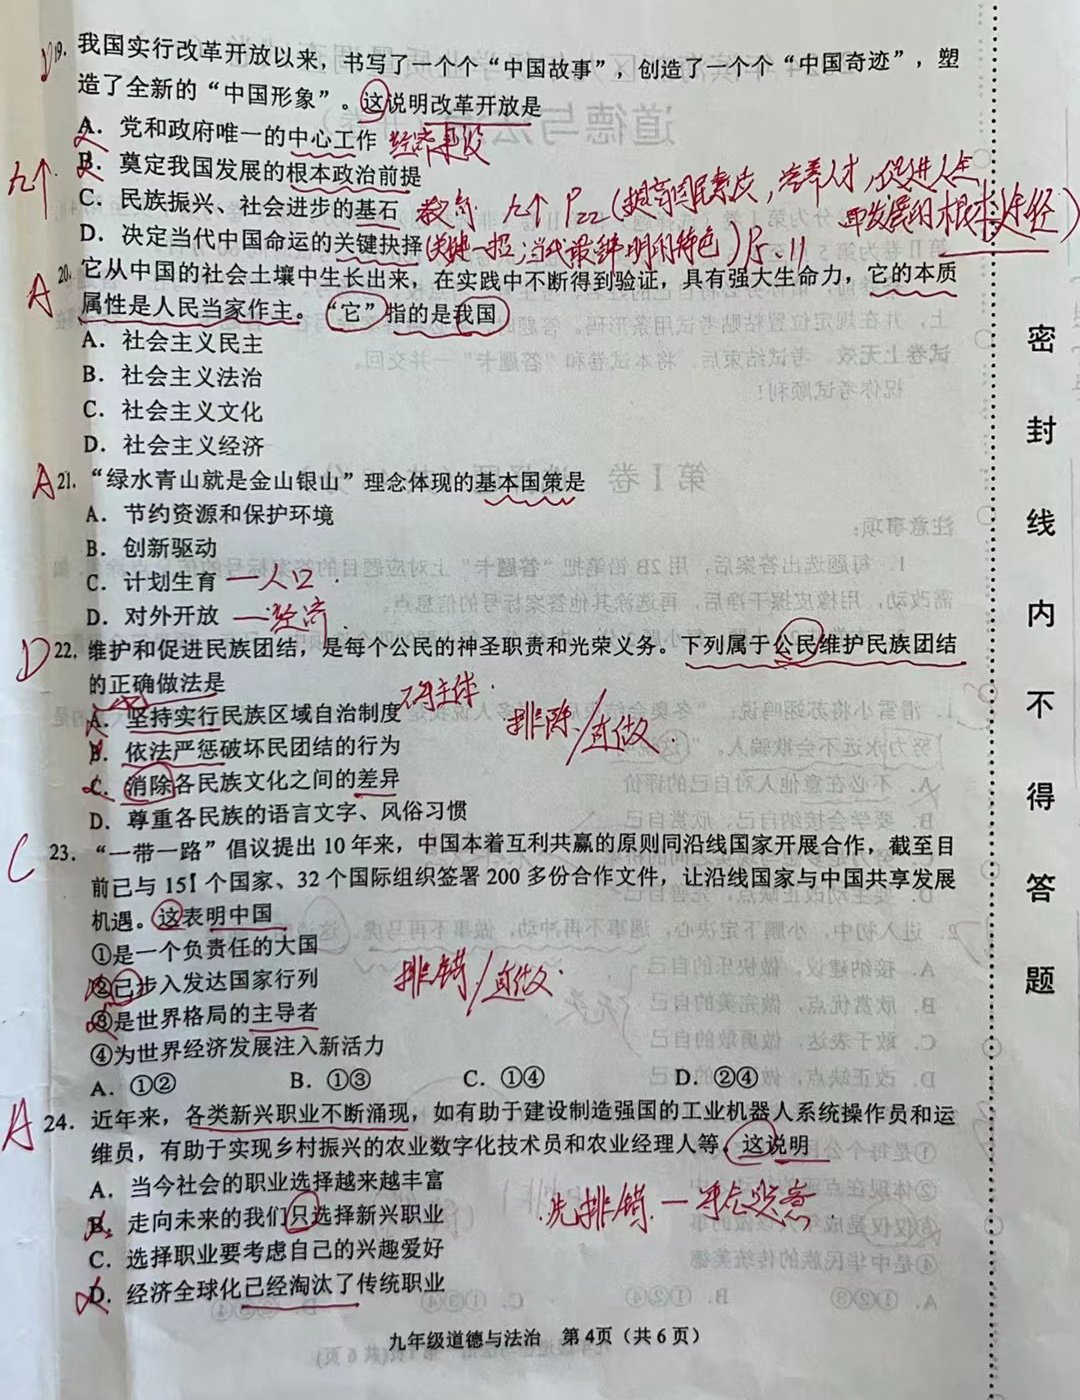 D 19. 我国实行改革开放以来，书写了一个个“中国故事”，创造了一个个“中国奇迹”，塑
造了全新的“中国形象”。这说明改革开放是
A. 党和政府唯一的中心工作 经济建设
B. 奠定我国发展的根本政治前提
九个
C. 民族振兴、社会进步的基石 教育 九个 P22 (提高国民素质，培养人才，促进人全
面发展的根本途径)
D. 决定当代中国命运的关键抉择(关键一招；当代最鲜明的特色) P5、11
A 20. 它从中国的社会土壤中生长出来，在实践中不断得到验证，具有强大生命力，它的本质
属性是人民当家作主。“它”指的是我国
A. 社会主义民主
B. 社会主义法治
C. 社会主义文化
D. 社会主义经济
A 21. “绿水青山就是金山银山”理念体现的基本国策是
A. 节约资源和保护环境
B. 创新驱动
C. 计划生育 —人口
D. 对外开放 —经济
D 22. 维护和促进民族团结，是每个公民的神圣职责和光荣义务。下列属于公民维护民族团结
的正确做法是
A. 坚持实行民族区域自治制度 不同主体
排除/直做
B. 依法严惩破坏民团结的行为
C. 消除各民族文化之间的差异
D. 尊重各民族的语言文字、风俗习惯
C 23. “一带一路”倡议提出 10 年来，中国本着互利共赢的原则同沿线国家开展合作，截至目
前已与 151 个国家、32 个国际组织签署 200 多份合作文件，让沿线国家与中国共享发展
机遇。这表明中国
①是一个负责任的大国
②已步入发达国家行列 排错/直做
③是世界格局的主导者
④为世界经济发展注入新活力
A. ①② B. ①③ C. ①④ D. ②④
A 24. 近年来，各类新兴职业不断涌现，如有助于建设制造强国的工业机器人系统操作员和运
维员，有助于实现乡村振兴的农业数字化技术员和农业经理人等。这说明
A. 当今社会的职业选择越来越丰富
B. 走向未来的我们只选择新兴职业 先排错—再忘题意
C. 选择职业要考虑自己的兴趣爱好
D. 经济全球化已经淘汰了传统职业
九年级道德与法治 第4页（共6页）
密
封
线
内
不
得
答
题